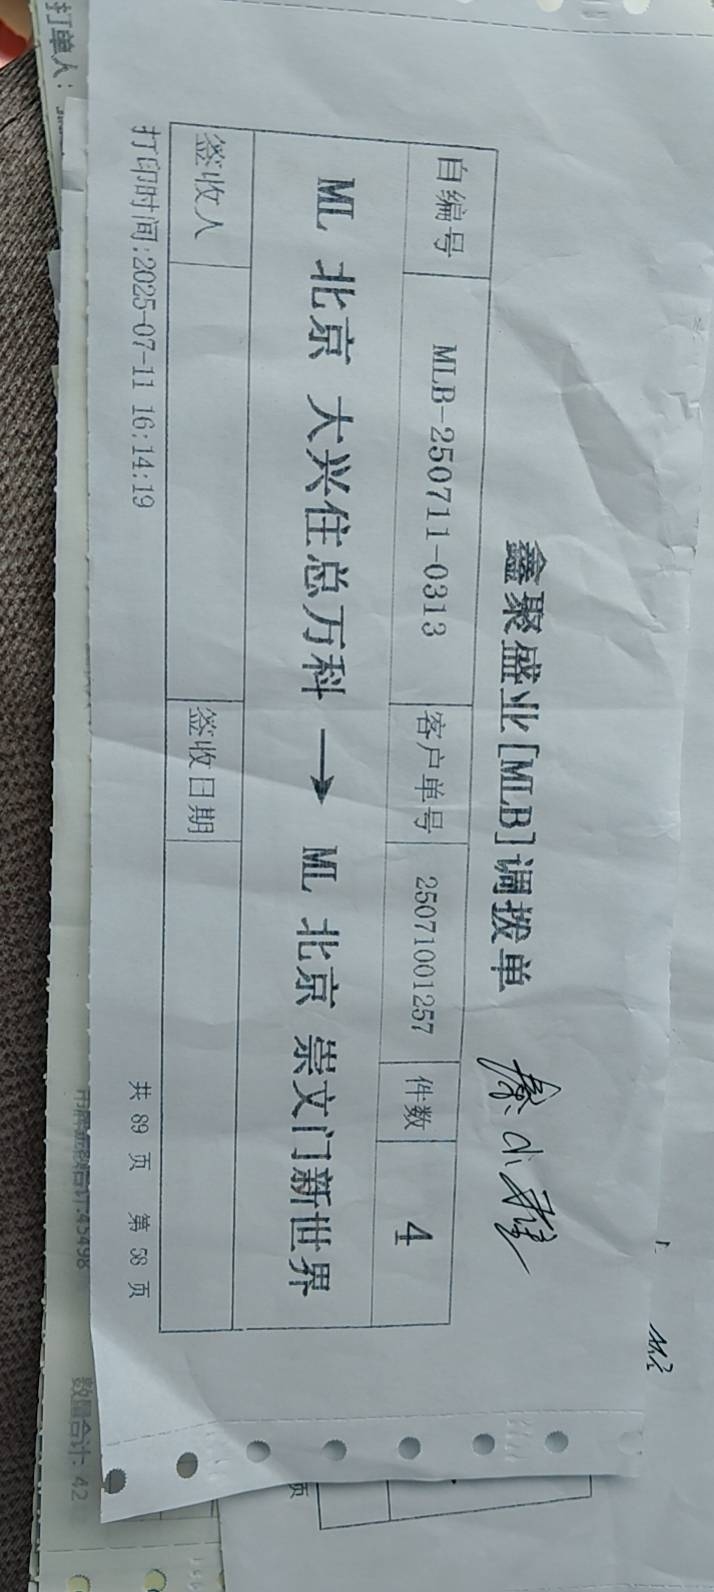 鑫聚盛业[MLB]调拨单
自编号 MLB-250711-0313 客户单号 25071001257 件数 4
ML 北京 大兴住总万科 → ML 北京 崇文门新世界
签收人 签收日期
打印时间:2025-07-11 16:14:19 共 89 页 第 58 页
打单人:
数量合计: 42
页